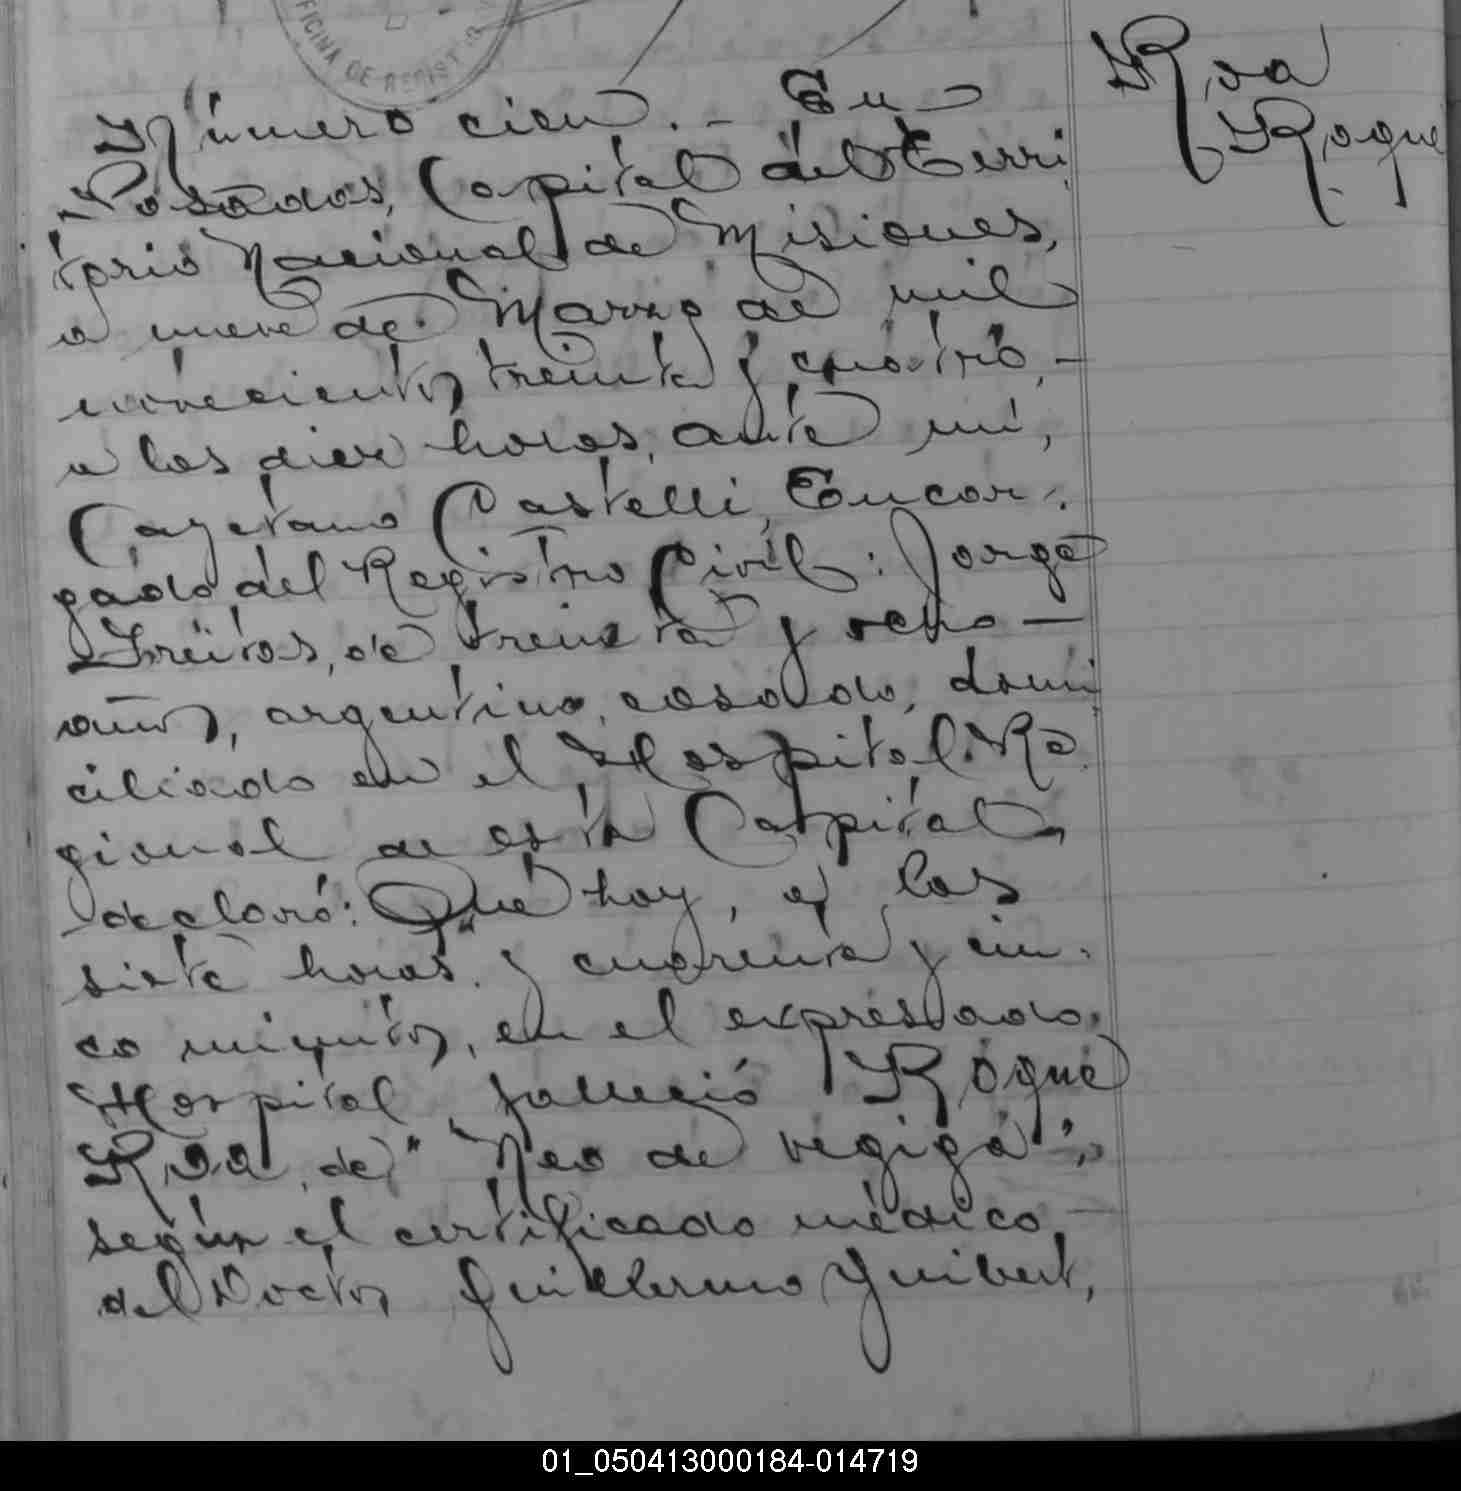 OFICINA DE REGIST
Roa
Roque
Número cien.- En
Posadas, Capital del Terri
torio Nacional de Misiones,
a nueve de Marzo de mil
novecientos treinta y cuatro,-
a las diez horas, ante mí,
Cayetano Castelli, Encar-
gado del Registro Civil: Jorge
Freitas, de treinta y ocho —
años, argentino, casado, domi
ciliado en el Hospital Re
gional de esta Capital,
declaró: Que hoy, a las
siete horas y cuarenta y cin-
co minutos, en el expresado
Hospital, falleció Roque
Roa, de "Neo de vegiga";
según el certificado médico
del Doctor Guillermo Guibert,
01_050413000184-014719